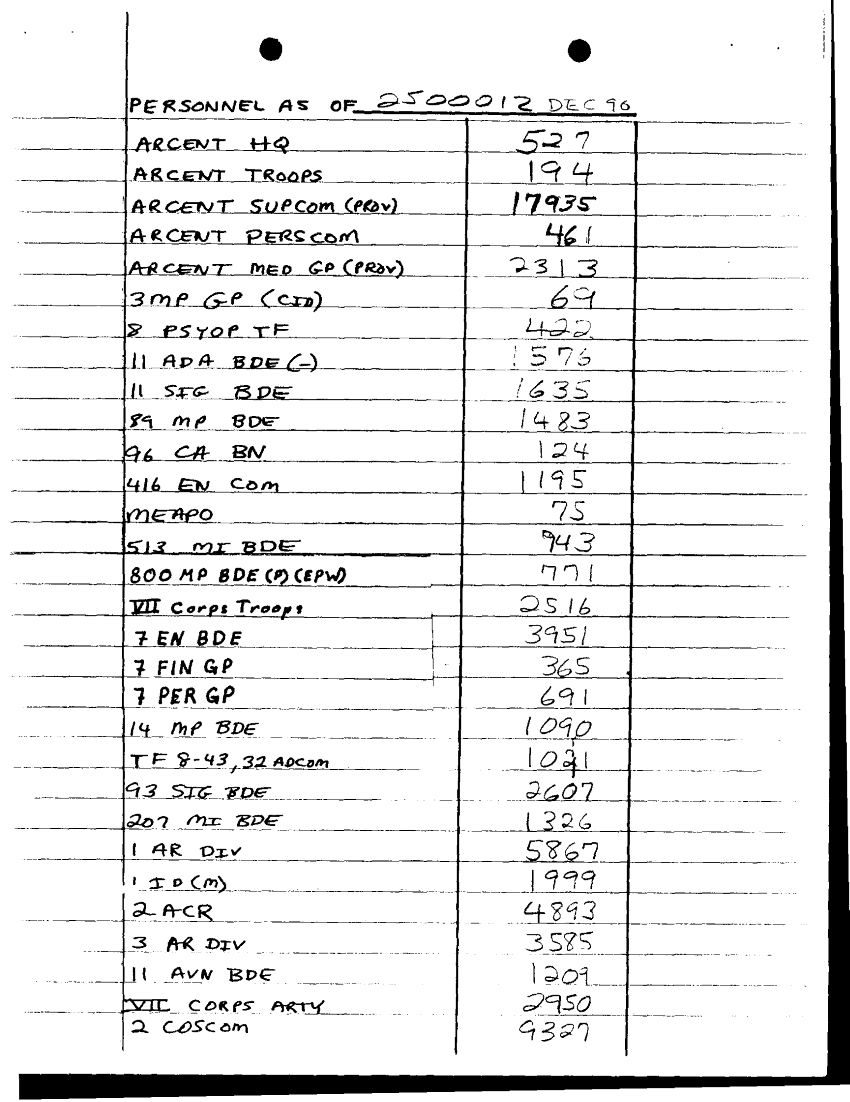 PERSONNEL AS OF 250001Z DEC 90
ARCENT HQ 527
ARCENT TROOPS 194
ARCENT SUPCOM (PROV) 17935
ARCENT PERSCOM 461
ARCENT MED GP (PROV) 2313
3 MP GP (CID) 69
8 PSYOP TF 422
11 ADA BDE (-) 1576
11 SIG BDE 1635
89 MP BDE 1483
96 CA BN 124
416 EN COM 1195
MEAPO 75
513 MI BDE 943
800 MP BDE (P) (EPW) 771
VII Corps Troops 2516
7 EN BDE 3951
7 FIN GP 365
7 PER GP 691
14 MP BDE 1090
TF 8-43, 32 ADCOM 1021
93 SIG BDE 2607
207 MI BDE 1326
1 AR DIV 5867
1 ID (M) 1999
2 ACR 4893
3 AR DIV 3585
11 AVN BDE 1209
VII CORPS ARTY 2950
2 COSCOM 9327